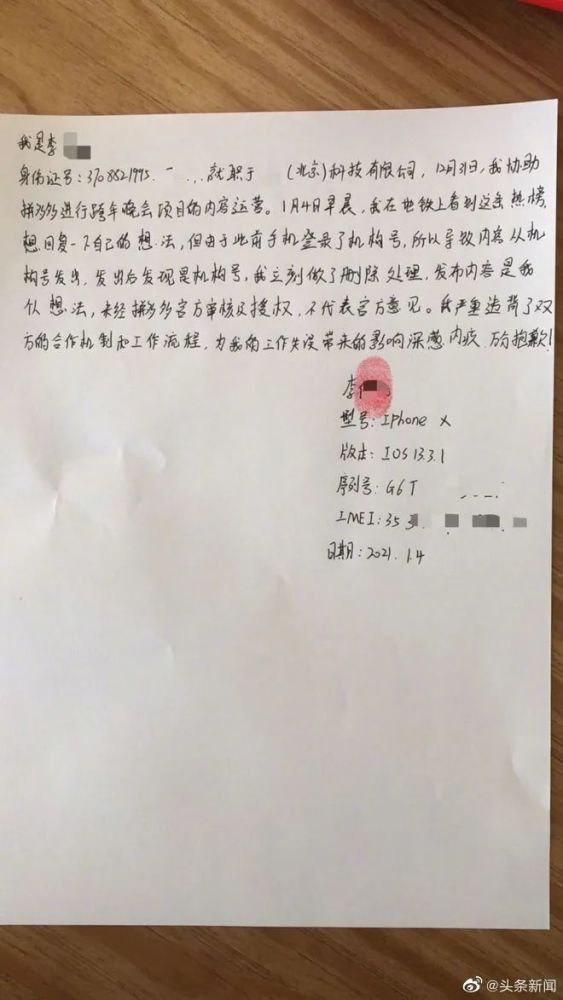 我是李
身份证号：3708821995. 就职于 (北京)科技有限公司，12月31日，我协助
拼多多进行跨年晚会项目的内容运营。1月4日早晨，我在地铁上看到这条热榜，
想回复一下自己的想法，但由于此前手机登录了机构号，所以导致内容从机
构号发出，发出后发现是机构号，我立刻做了删除处理，发布内容是我
个人想法，未经拼多多官方审核及授权，不代表官方意见。我严重违背了双
方的合作机制和工作流程，为我的工作失误带来的影响深感内疚，万分抱歉！
李
型号：Iphone X
版本：IOS 13.3.1
序列号：G6T
IMEI：35
日期：2021.1.4
@头条新闻